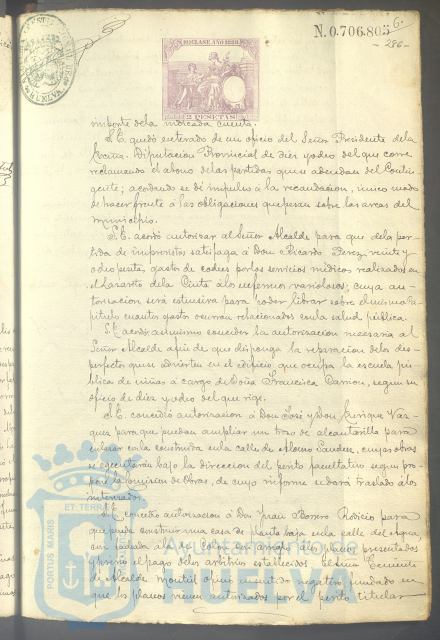 N. 0.706.805
6.
- 286 -
10ª CLASE. AÑO 1889.
2 PESETAS
importe de la indicada cuenta.
S.E. quedó enterado de un oficio del Señor Presidente de la
Excma. Diputacion Provincial de diez y ocho del que corre
reclamando el abono de las partidas que se adeudan del Contin-
gente; acordando se dé impulso á la recaudacion, único modo
de hacer frente á las obligaciones que pesan sobre las arcas del
municipio.
S.E. acordó autorizar al Señor Alcalde para que de la par-
tida de imprevistos satisfaga á Don Ricardo Perez veinte y
ocho pesetas, gastos de coches por los servicios médicos realizados en
el Lazareto de la Cinta á los enfermos variolosos; cuya au-
torizacion será estensiva para poder librar sobre el mismo ca-
pitulo cuantos gastos ocurran relacionados con la salud pública.
S.E. acordó asimismo conceder la autorizacion necesaria al
Señor Alcalde afin de que disponga la reparacion de los des-
perfectos que se advierten en el edificio que ocupa la escuela pú-
blica de niñas á cargo de Doña Francisca Carrion, segun su
oficio de diez y ocho del que rige.
S.E. concedió autorizacion á Don José y Don Enrique Vaz-
quez para que puedan ampliar un trozo de alcantarilla para
enlazar con la construida en la calle de Alonso Sanchez, cuyas obras
se ejecutarán bajo la direccion del perito facultativo segun pro-
pone la comision de obras, de cuyo informe se dará traslado á los
interesados.
S.E. concedió autorizacion á Don Juan Borrero Rodicio para
que pueda construir una casa de planta baja en la calle del
con fachada á la de con arreglo á los planos presentados
y previo el pago de los arbitrios establecidos. El Señor Teniente
de Alcalde Montiel opinó en sentido negativo fundado en
que los planos vienen autorizados por el perito titular
PORTUS MARIS
ET TERRÆ
Ayuntamiento de
HUELVA